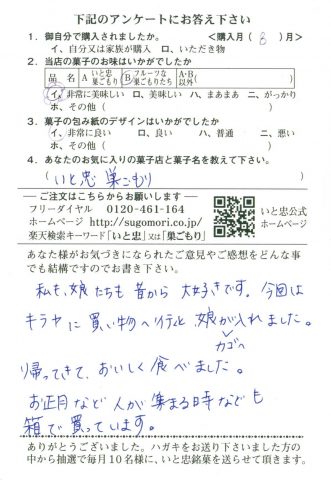 下記のアンケートにお答え下さい
1. 御自分で購入されましたか。 <購入月( 8 )月>
イ、自分又は家族が購入 ロ、いただき物
2. 当店の菓子のお味はいかがでしたか
品名 A いと忠巣ごもり B フルーツな巣ごもりたち A・B以外( )
イ、非常に美味しい ロ、美味しい ハ、まあまあ ニ、がっかり
ホ、その他( )
3. 菓子の包み紙のデザインはいかがでしたか
イ、非常に良い ロ、良い ハ、普通 ニ、悪い
ホ、その他( )
4. あなたのお気に入りの菓子店と菓子名を教えて下さい。
(いと忠 巣ごもり )
ご注文はこちらからお願いします
フリーダイヤル 0120-461-164
ホームページ http://sugomori.co.jp/
楽天検索キーワード「いと忠」又は「巣ごもり」
いと忠公式
ホームページ
あなた様がお気づきになられたご意見やご感想をどんな事
でも結構ですのでお書き下さい。
私も、娘たちも昔から大好きです。今回は
キラヤに買い物へ行くと、娘が入れました。
カゴへ
帰ってきて、おいしく食べました。
お正月など人が集まる時なども
箱で買っています。
ありがとうございました。ハガキをお送り下さいました方の
中から抽選で毎月10名様に、いと忠銘菓を送らせて頂きます。